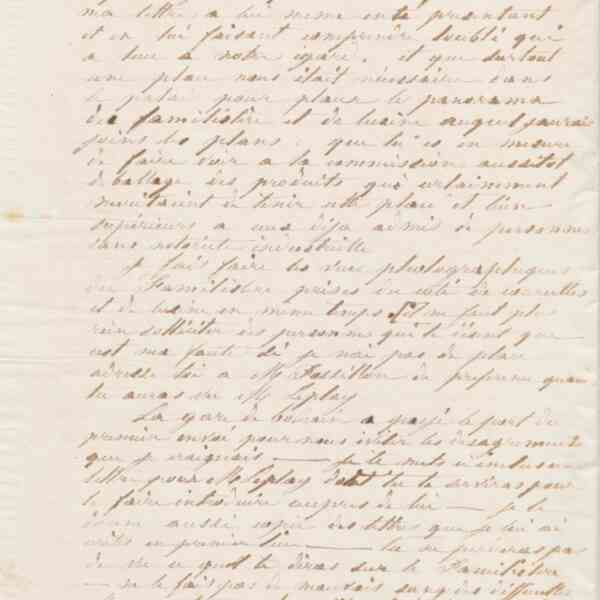 ma lettre a lui même en te présentant
et en lui faisant comprendre l'oubli qui
a lieu a notre égard, et que surtout
une place nous était nécessaire dans
le palais pour placer le panorama
du familistère et de l'usine auquel j'aurais
joins les plans, que tu es en mesure
de faire voir a la commission aussitot
déballage des produits qui certainement
méritaient de tenir cette place et bien
supérieurs a ceux déja admis de personnes
sans notoriété industrielle
Je fais faire les vues photographiques
du Familistère prises du coté de
et de l'usine en même temps Il ne faut plus
rien solliciter des personnes qui te disent que
c'est ma faute si je n'ai pas de place
adresse toi a Mr de préférence quand
tu auras vu Mr Leplay
La gare de a payé le port du
premier envoi pour nous éviter les désagréments
que je craignais — Je te mets ci incluse une
lettre pour Mr Leplay dont tu te serviras pour
te faire introduire auprès de lui — je te
donne aussi copie des lettres que je lui ai
écrites en premier lieu — tu ne
de vue ce que te diras sur le Familistère
— ne te fais pas de mauvais sang des difficultés